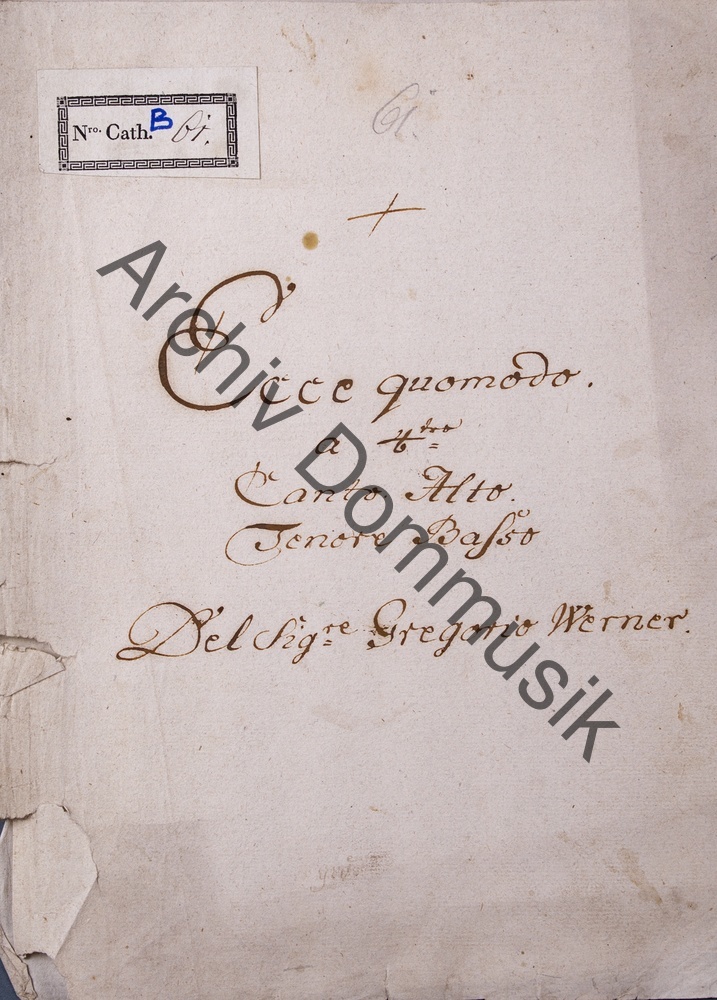 Nro. Cath. B 61.
61.
Ecce quomodo.
a 4tro
Canto Alto.
Tenore Baſso
Del Sigre Gregorio Werner.
Archiv Dommusik